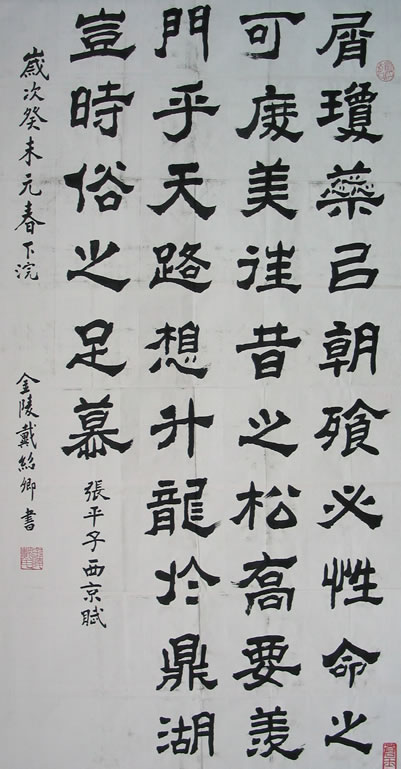 屑瓊蘂㠯朝飱必性命之
可度美往昔之松喬要羨
門乎天路想升龍於鼎湖
豈時俗之足慕
張平子西京賦
歲次癸未元春下浣
金陵戴卿書